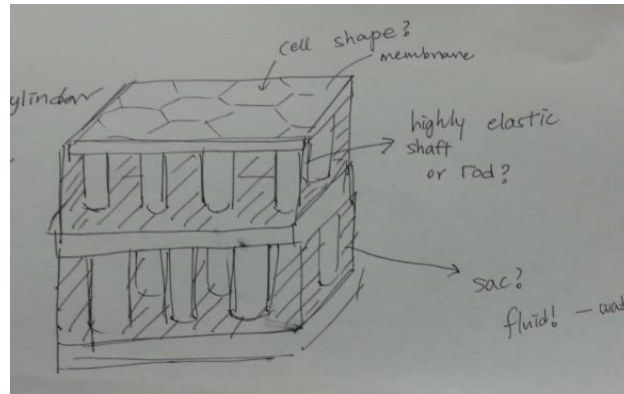 cell shape?
membrane
ylinder
highly elastic
shaft
or rod?
sac?
fluid! – wat